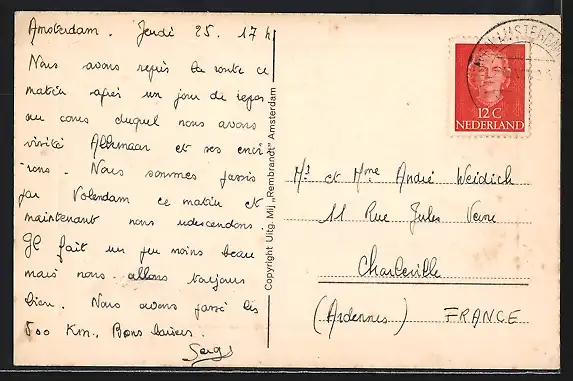 Amsterdam. Jeudi 25. 17 h
Nous avons repris la route ce
matin après un jour de repos
au cours duquel nous avons
visité Alkmaar et ses envi
rons. Nous sommes passés
par Volendam ce matin et
maintenant nous redescendons.
Il fait un peu moins beau
mais nous allons toujours
bien. Nous avons passé les
800 Km., Bons baisers.
Serge
Copyright Uitg. Mij „Rembrandt" Amsterdam
AMSTERDAM
12 C
NEDERLAND
Mr et Mme André Weidich
11 Rue Jules Verne
Charleville
(Ardennes) FRANCE